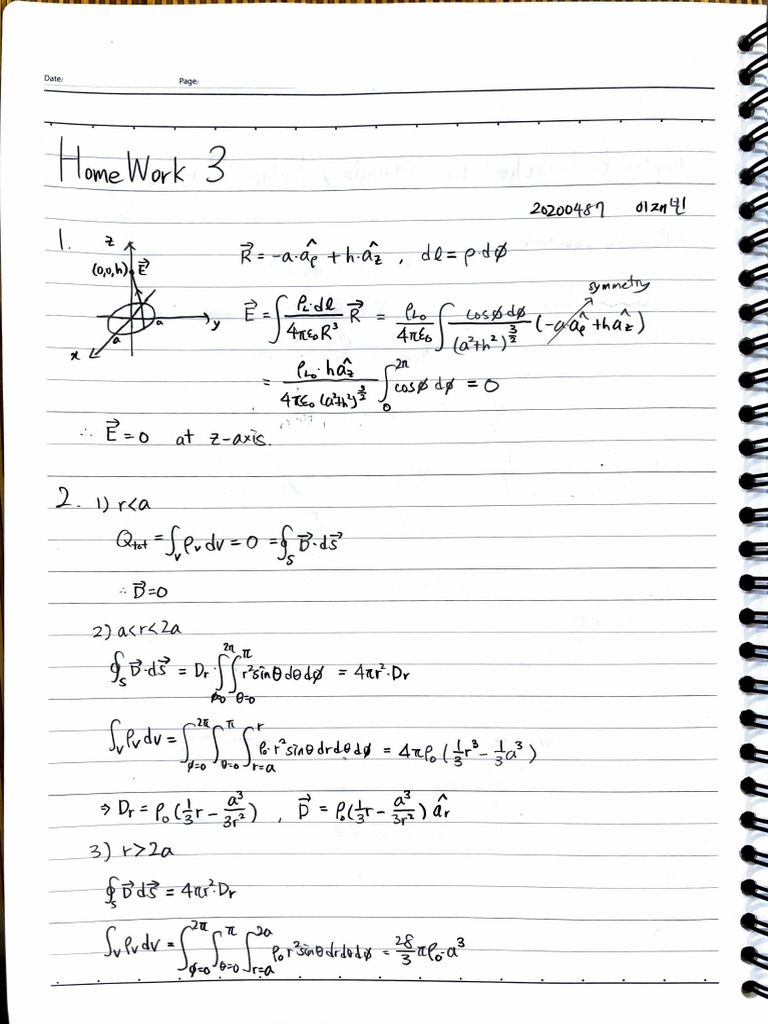 Date:
Page:
HomeWork 3
20200487 이재빈
1.
z
(0,0,h) E⃗
y
x
a
a
R⃗ = -a·âρ + h·âz , dl = ρ·dϕ
symmetry
E⃗ = ∫ ρL·dl / 4πε₀R³ R⃗ = ρL₀ / 4πε₀ ∫ cosϕ dϕ / (a²+h²)^(3/2) (-a·âρ + hâz)
= ρL₀·hâz / 4πε₀(a²+h²)^(3/2) ∫₀^2π cosϕ dϕ = 0
∴ E⃗ = 0 at z-axis.
2. 1) r<a
Qtot = ∫v ρv dv = 0 = ∮s D⃗·ds⃗
∴ D⃗ = 0
2) a<r<2a
∮s D⃗·ds⃗ = Dr·∫_{ϕ=0}^{2π} ∫_{θ=0}^{π} r²sinθ dθ dϕ = 4πr²·Dr
∫v ρv dv = ∫_{ϕ=0}^{2π} ∫_{θ=0}^{π} ∫_{r=a}^{r} ρ₀·r²sinθ dr dθ dϕ = 4πρ₀(1/3 r³ - 1/3 a³)
⇒ Dr = ρ₀(1/3 r - a³/3r²) , D⃗ = ρ₀(1/3 r - a³/3r²) âr
3) r>2a
∮s D⃗ ds⃗ = 4πr²·Dr
∫v ρv dv = ∫_{ϕ=0}^{2π} ∫_{θ=0}^{π} ∫_{r=a}^{2a} ρ₀ r² sinθ dr dθ dϕ = 28/3 πρ₀·a³